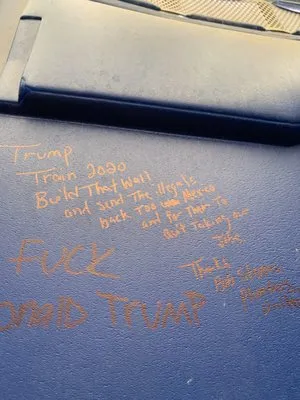 Trump
Train 2020
Build That Wall
and send the illegals
back too Mexico
and for them To
Quit Taking our
Jobs
Thanks
FUCK
DONALD TRUMP